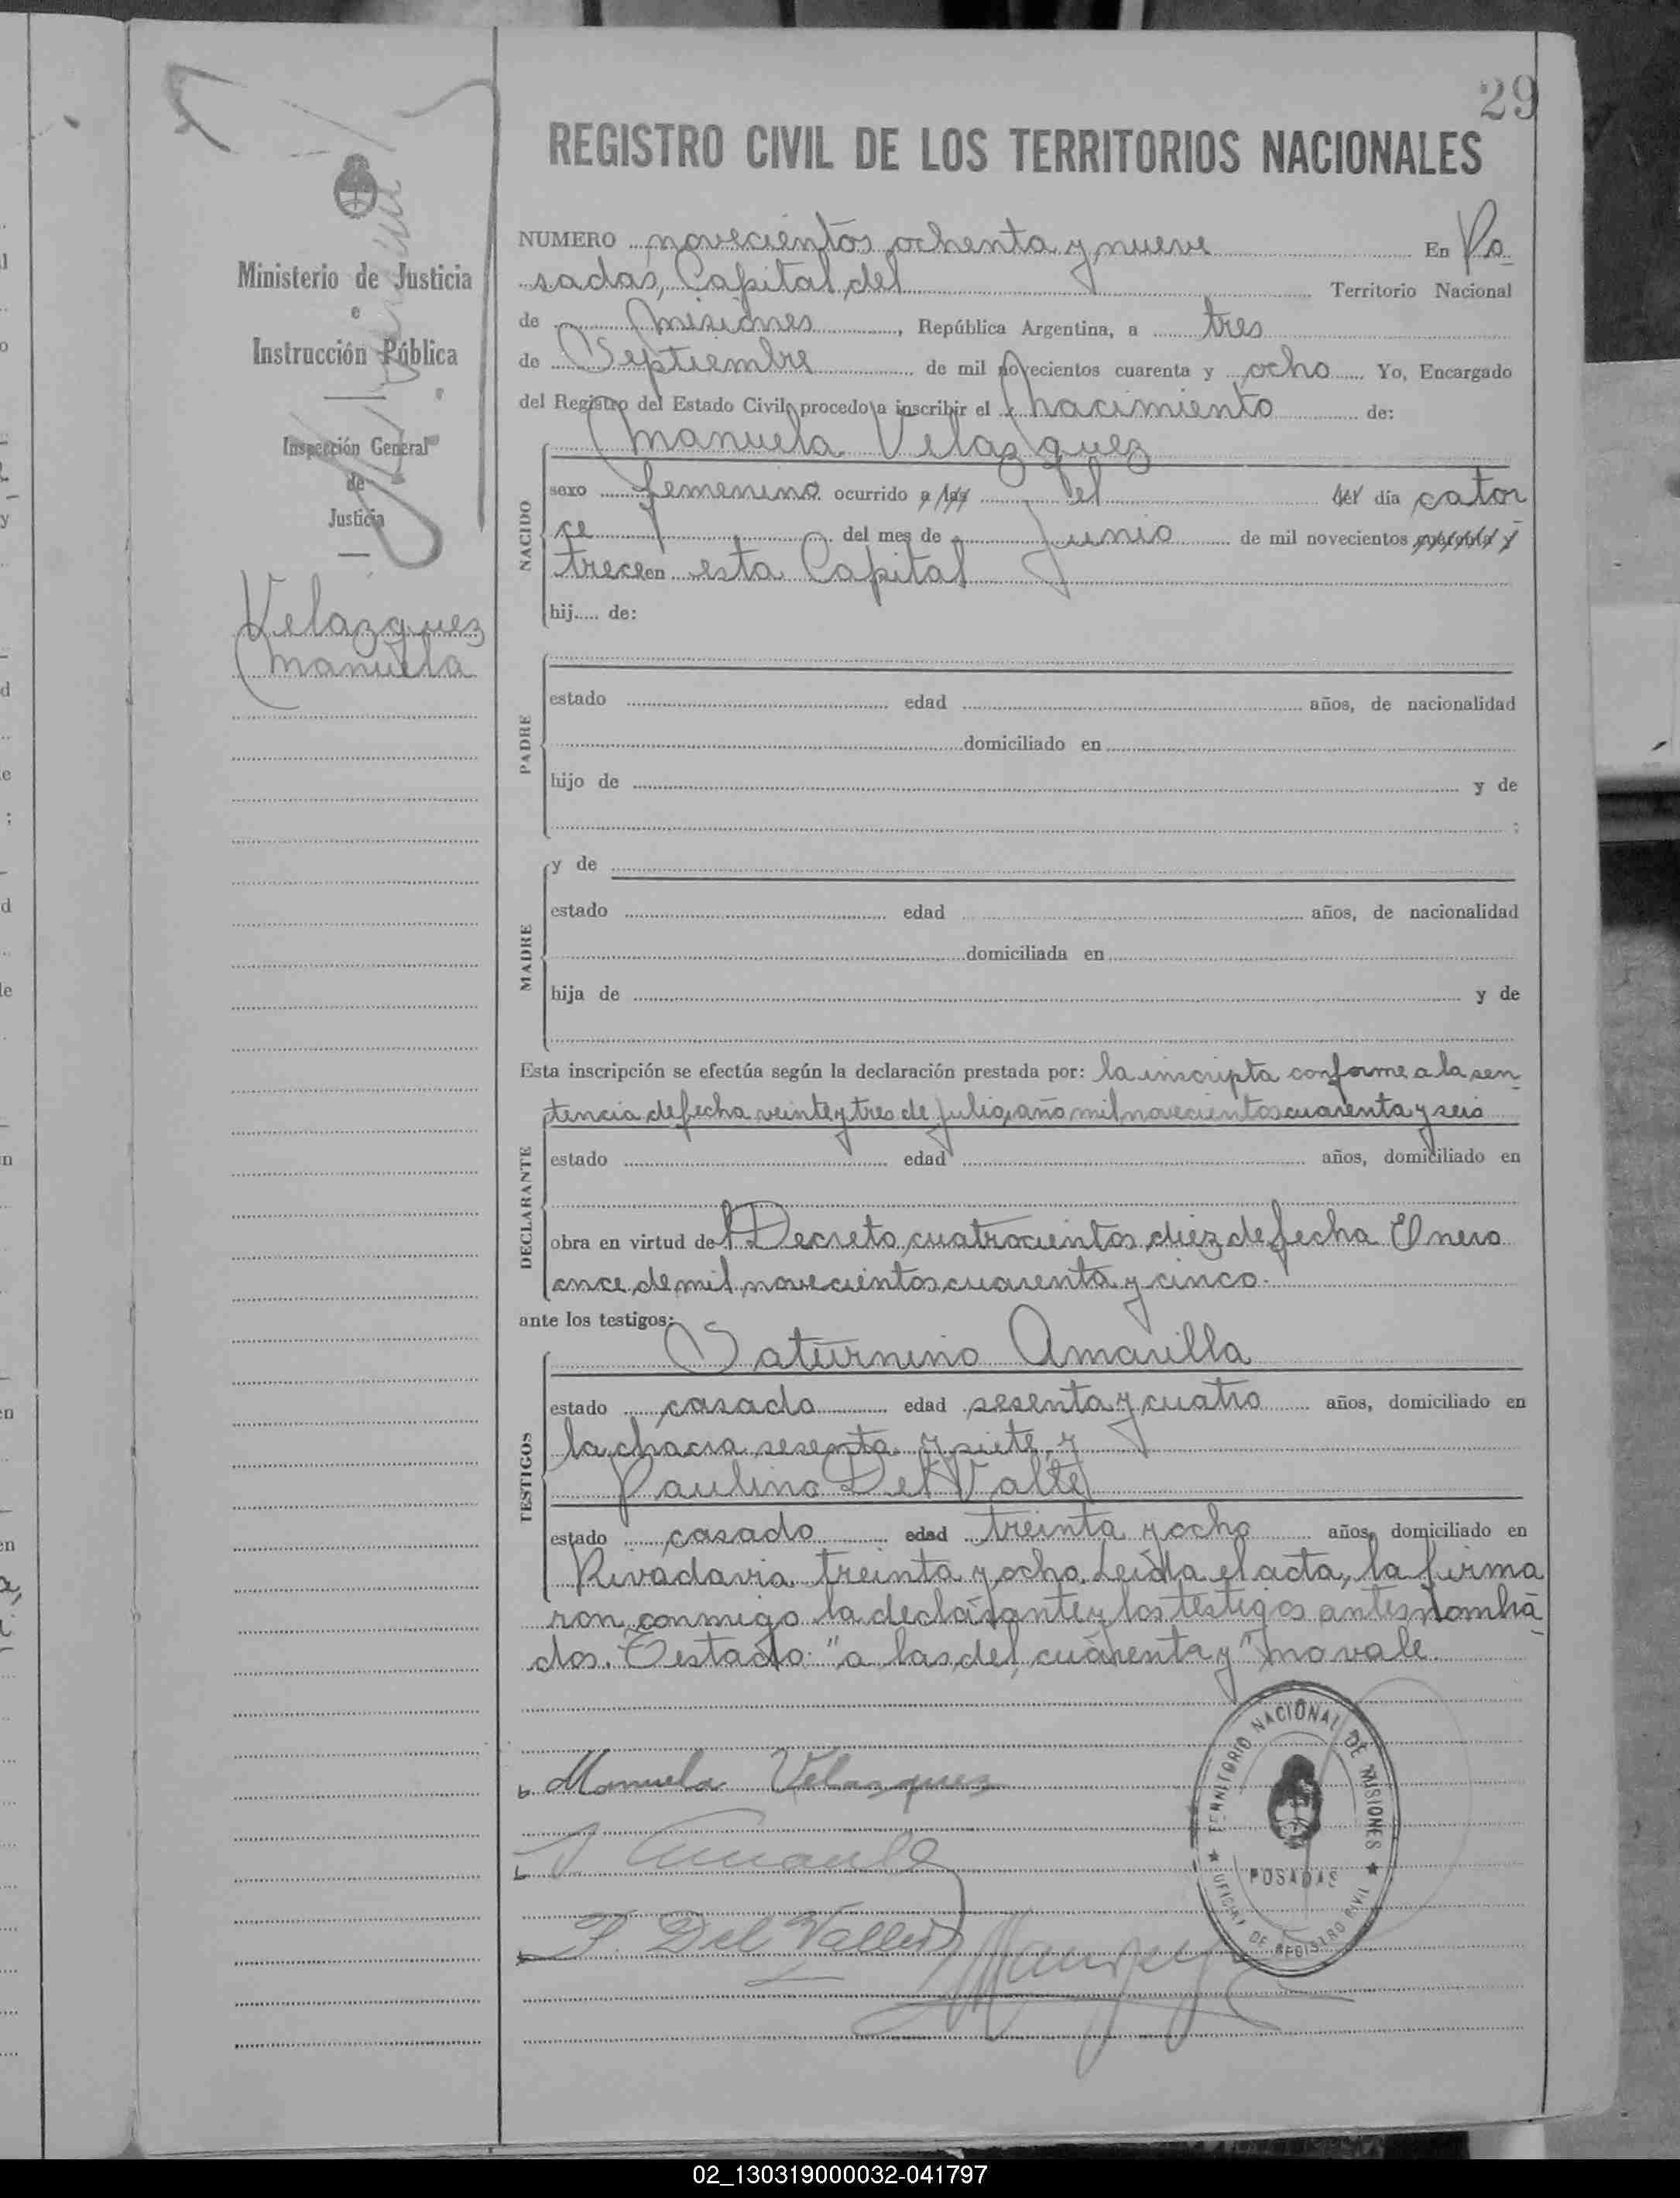 29
REGISTRO CIVIL DE LOS TERRITORIOS NACIONALES
Ministerio de Justicia
e
Instrucción Pública
Inspección General
de
Justicia
Velazquez
Manuela
NUMERO novecientos ochenta y nueve En Po-
sadas, Capital del Territorio Nacional
de Misiones, República Argentina, a tres
de Septiembre de mil novecientos cuarenta y ocho Yo, Encargado
del Registro del Estado Civil, procedo a inscribir el nacimiento de:
Manuela Velazquez
NACIDO
sexo femenino ocurrido a las el del día cator
ce del mes de Junio de mil novecientos cuarenta y
trece en esta Capital
hij..... de:
PADRE
estado edad años, de nacionalidad
domiciliado en
hijo de y de
;
MADRE
y de
estado edad años, de nacionalidad
domiciliada en
hija de y de
Esta inscripción se efectúa según la declaración prestada por: la inscripta conforme a la sen-
tencia de fecha veinte y tres de julio, año mil novecientos cuarenta y seis
DECLARANTE
estado edad años, domiciliado en
obra en virtud del Decreto cuatrocientos diez de fecha Enero
once de mil novecientos cuarenta y cinco.
ante los testigos:
TESTIGOS
Saturnino Amarilla
estado casado edad sesenta y cuatro años, domiciliado en
la chacra sesenta y siete, y
Paulino Del Valle
estado casado edad treinta y ocho años, domiciliado en
Rivadavia treinta y ocho. Leida el acta, la firma
ron conmigo la declarante y los testigos antes nombra-
dos. Testado: "a las del, cuarenta y" no vale.
Manuela Velasquez
P. Del Valle
TERRITORIO NACIONAL DE MISIONES
POSADAS
OFICINA DE REGISTRO CIVIL
02_130319000032-041797